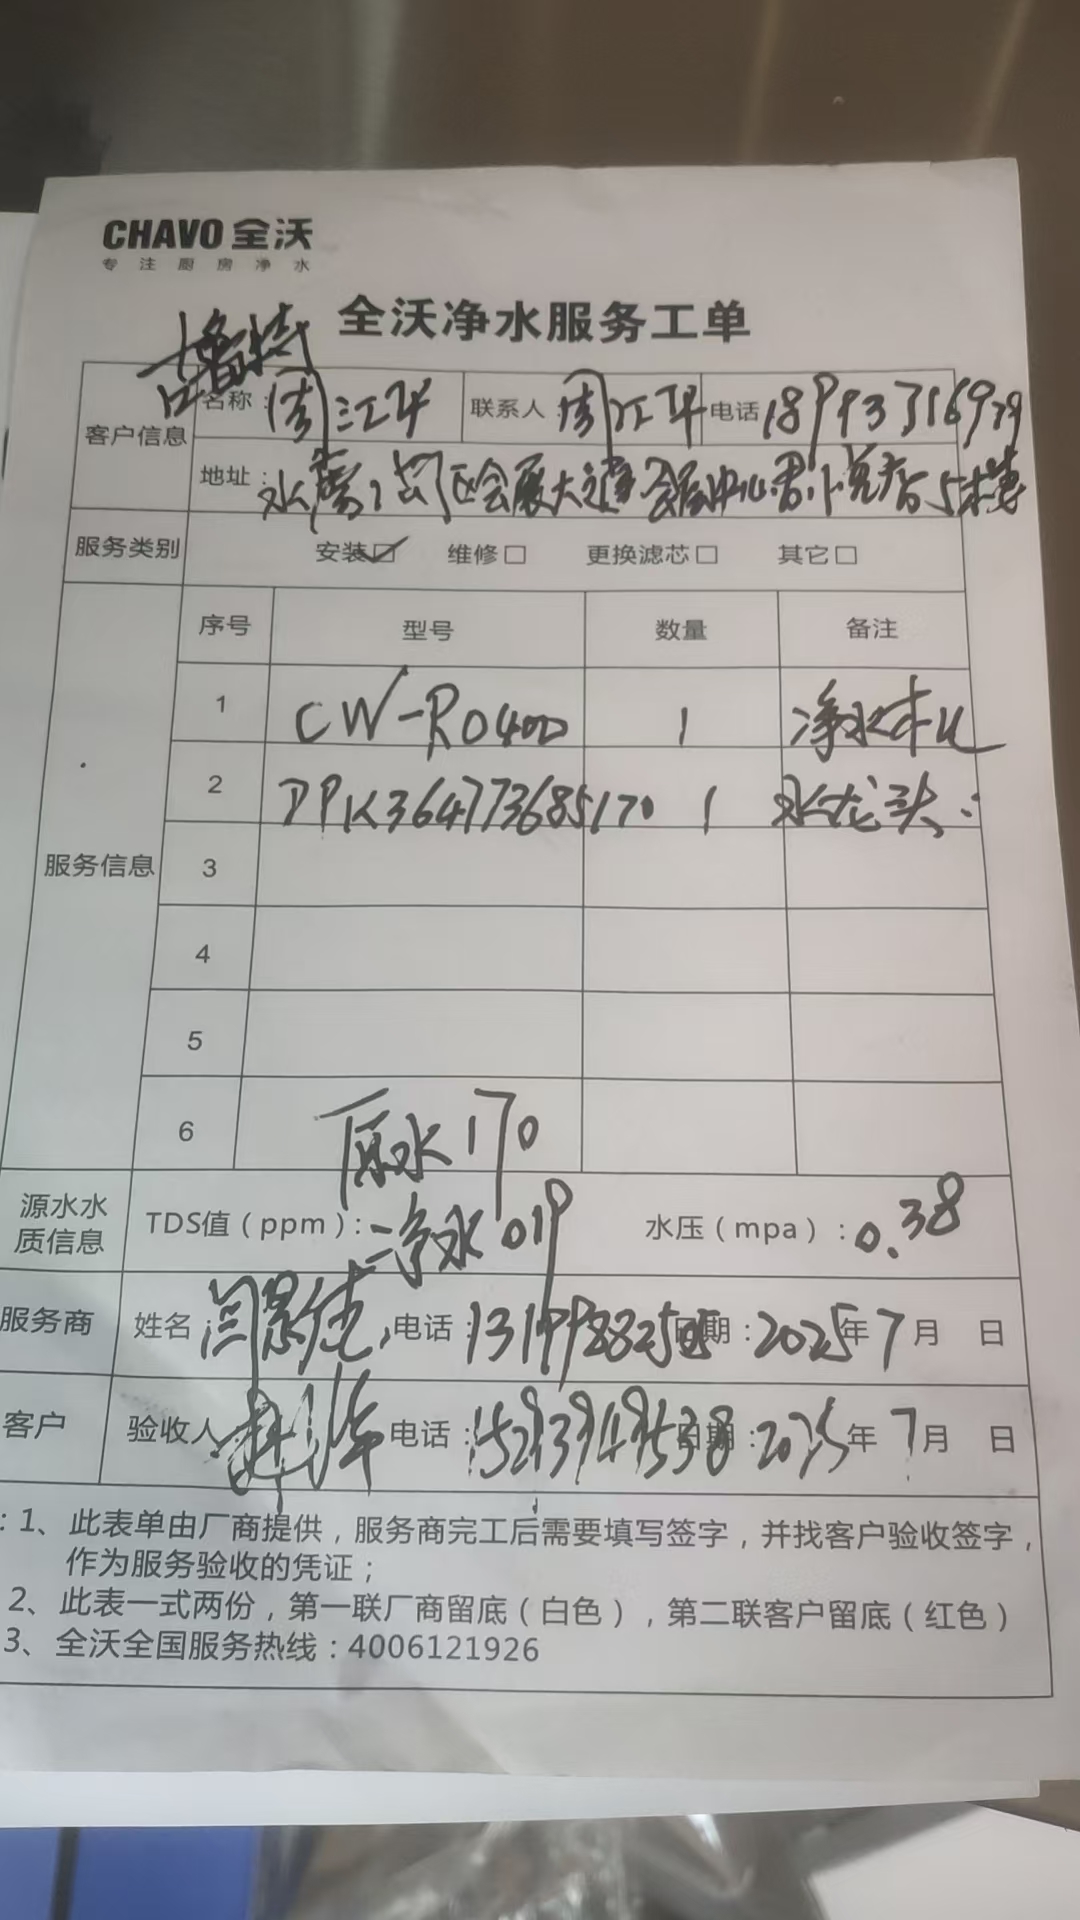 CHAVO 全沃
专注厨房净水
全沃净水服务工单
客户信息 名称：周江华 联系人：周江华 电话
地址：水磨沟区会展大道会展中心 5楼
服务类别 安装☑ 维修□ 更换滤芯□ 其它□
服务信息
序号 型号 数量 备注
1 CW-RO400 1 净水机
2 PPK364773685170 1 水龙头
3
4
5
6
原水170
源水水质信息 TDS值（ppm）：净水019 水压（mpa）：0.38
服务商 姓名： 电话： 日期：2025年7月 日
客户 验收人： 电话：15293949538 日期：2025年7月 日
：1、此表单由厂商提供，服务商完工后需要填写签字，并找客户验收签字，
作为服务验收的凭证；
2、此表一式两份，第一联厂商留底（白色），第二联客户留底（红色）
3、全沃全国服务热线：4006121926